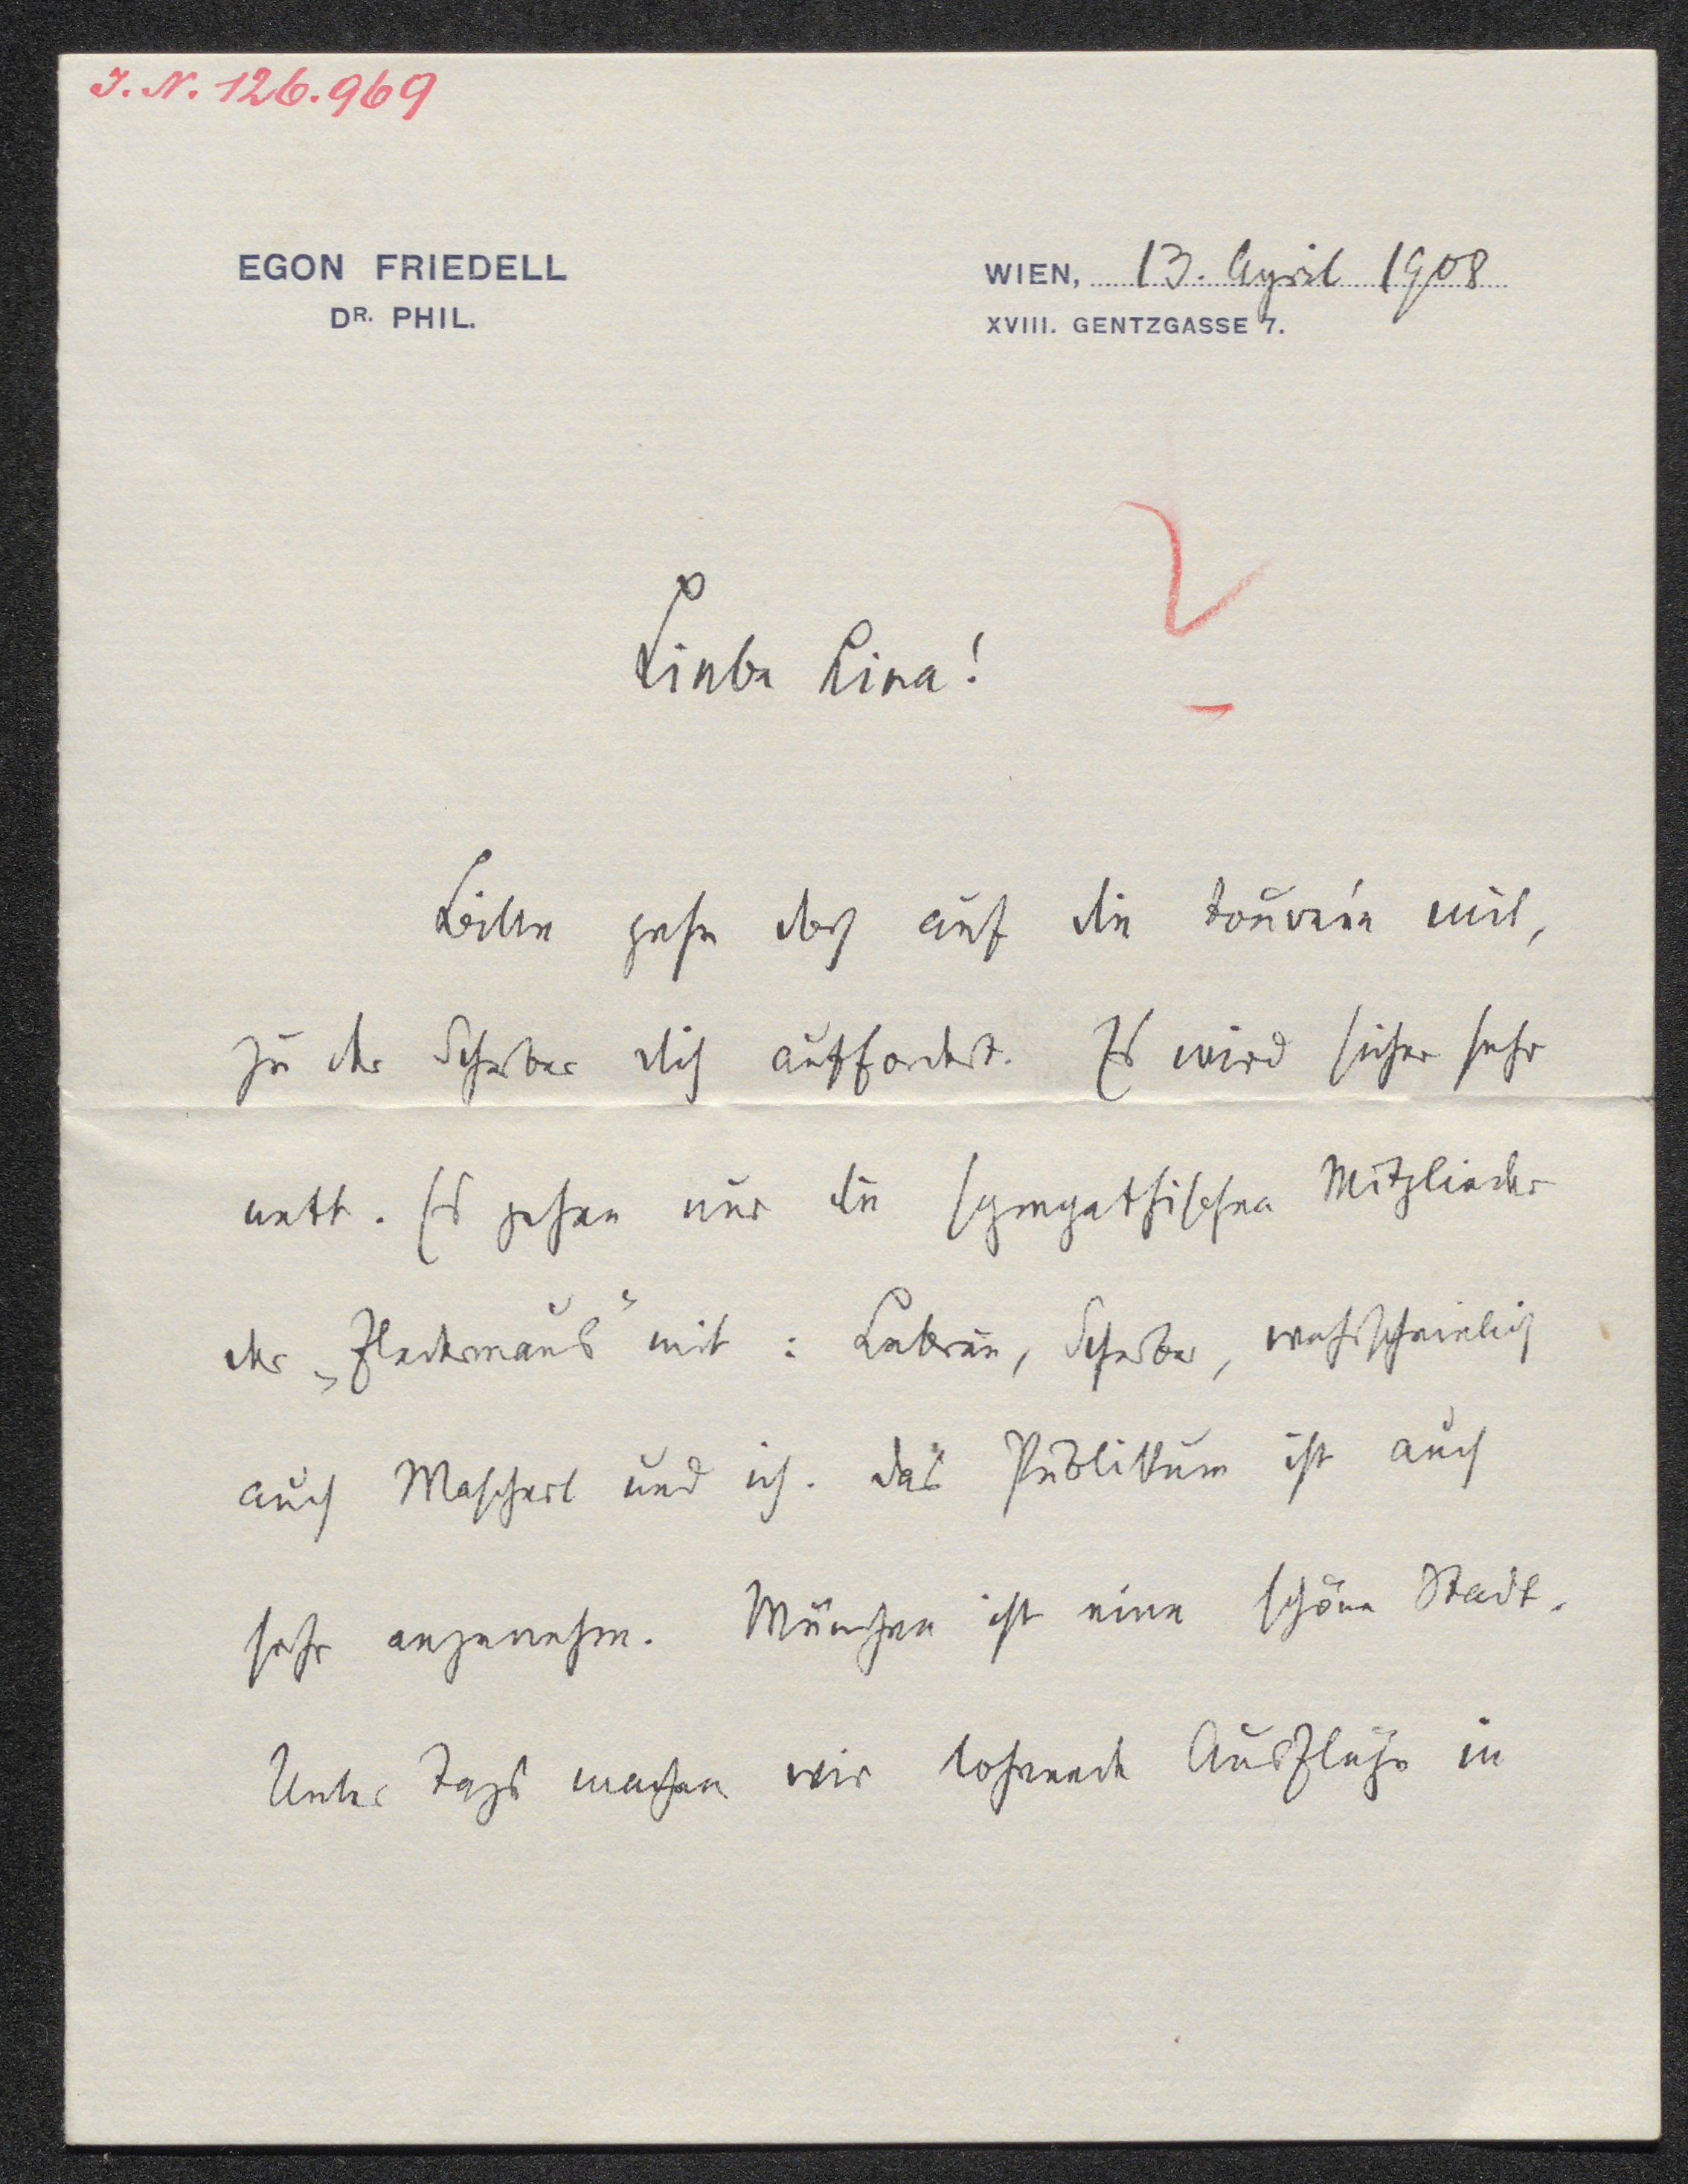 I. N. 126.969
EGON FRIEDELL
DR. PHIL.
WIEN, 13. April 1908
XVIII. GENTZGASSE 7.
Liebe Lina!
Bitte gehe doch auf die tournée mit,
zu der Scherber dich auffordert. Es wird sicher sehr
nett. Es gehen nur die sympathischen Mitglieder
der „Fledermaus" mit: Scherber, wahrscheinlich
auch Mascherl und ich. Das Publikum ist auch
sehr angenehm. München ist eine schöne Stadt.
Unter Tags machen wir lohnende Ausflüge in